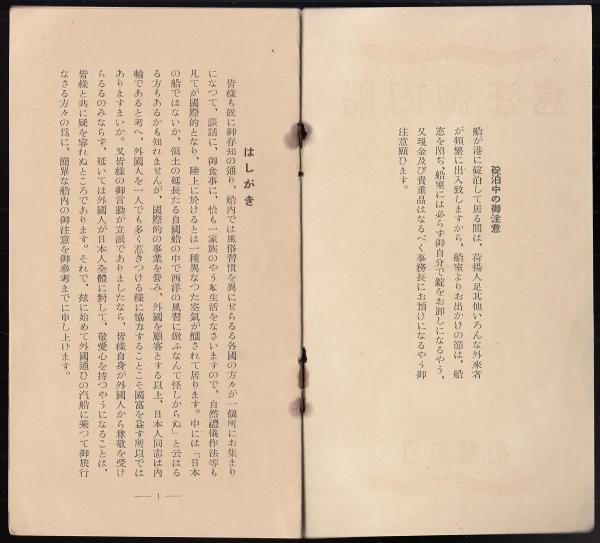 碇泊中の御注意
船が港に碇泊して居る間は、荷揚人足其他いろんな外來者
が頻繁に出入致しますから、船室よりお出かけの節は、船
窓を閉ぢ、船室には必らず御自分で錠をお卸しになるやう、
又現金及び貴重品はなるべく事務長にお預けになるやう御
注意願ひます。
はしがき
皆様も既に御存知の通り、船内では風俗習慣を異にせらるる各國の方々が一個所にお集まり
になつて、談話に、御食事に、恰も一家族のやうな生活をなさいますので、自然禮儀作法等も
凡てが國際的となり、陸上に於けるとは一種異なつた空氣が釀されて居ります。中には「日本
の船ではないか、領土の延長たる自國船の中で西洋の風習に倣ふなんて怪しからぬ」と云はる
る方もあるかも知れませんが、國際的の事業を營み、外國を顧客とする以上、日本人同志は内
輪であると考へ、外國人を一人でも多く惹きつける樣に協力することこそ國富を益す所以では
ありますまいか。又皆様の御言動が立派でありましたなら、皆様自身が外國人から尊敬を受け
らるるのみならず、延いては外國人が日本人全體に對して、敬愛心を持つやうになることは、
皆様と共に疑を容れぬところであります。それで、玆に始めて外國通ひの汽船に乘つて御旅行
なさる方々の爲に、簡單な船内の御注意を御參考までに申し上げます。
— 1 —